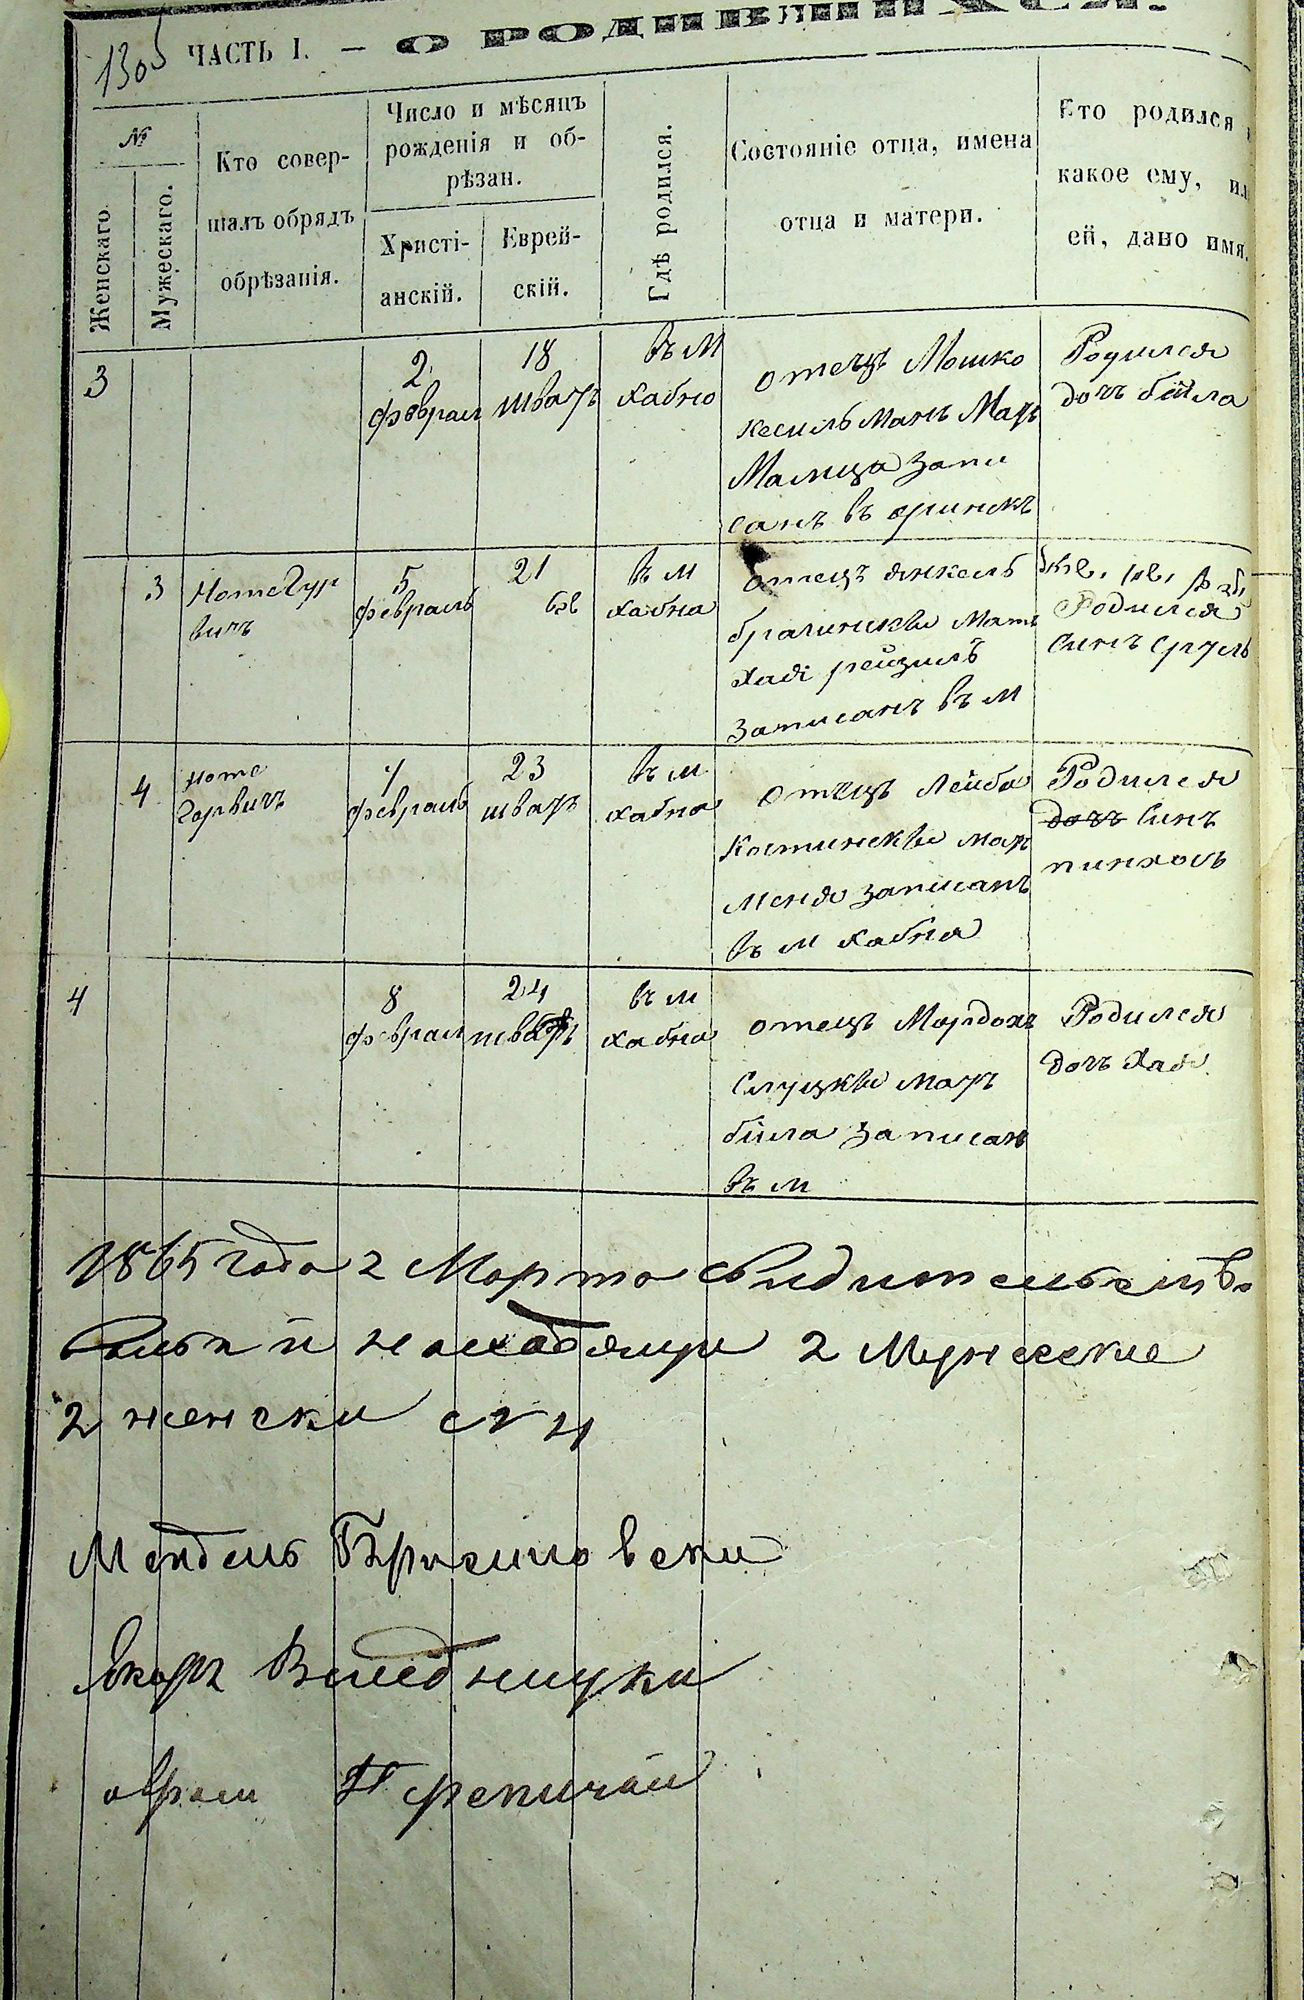 1305
ЧАСТЬ I. — О РОДИВШИХСЯ.
№
Женскаго
Мужескаго.
Кто совер-
шалъ обрядъ
обрѣзанія.
Число и мѣсяцъ
рожденія и об-
рѣзан.
Христі-
анскій.
Еврей-
скій.
Гдѣ родился.
Состояніе отца, имена
отца и матери.
Кто родился
какое ему, или
ей, дано имя.
3
2
феврал
18
шватъ
въ м
хабно
отецъ Мошко
кесильманъ Мать
Малица запи
санъ въ
Родился
дочъ бійла
3
Ноте Гур
вичъ
5
февраль
21
въ м
хабна
отецъ Янкель
брагинскій мать
хая рейзиль
записанъ въ м
Родился
синъ Сруль
4
Ноте
Горвичъ
7
февраль
23
шватъ
въ м
хабна
отецъ Лейба
костинскій мать
Меня записанъ
въ м хабна
Родился
дочъ Синъ
пинхось
4
8
феврал
24
шватъ
въ м
хабна
отецъ Мордохъ
Слуцкій мать
бійла записан
въ м
Родился
дочъ Хая
1865 года 2 Марта свидительств
2 Мужеские
2 женски
Мендель
овром